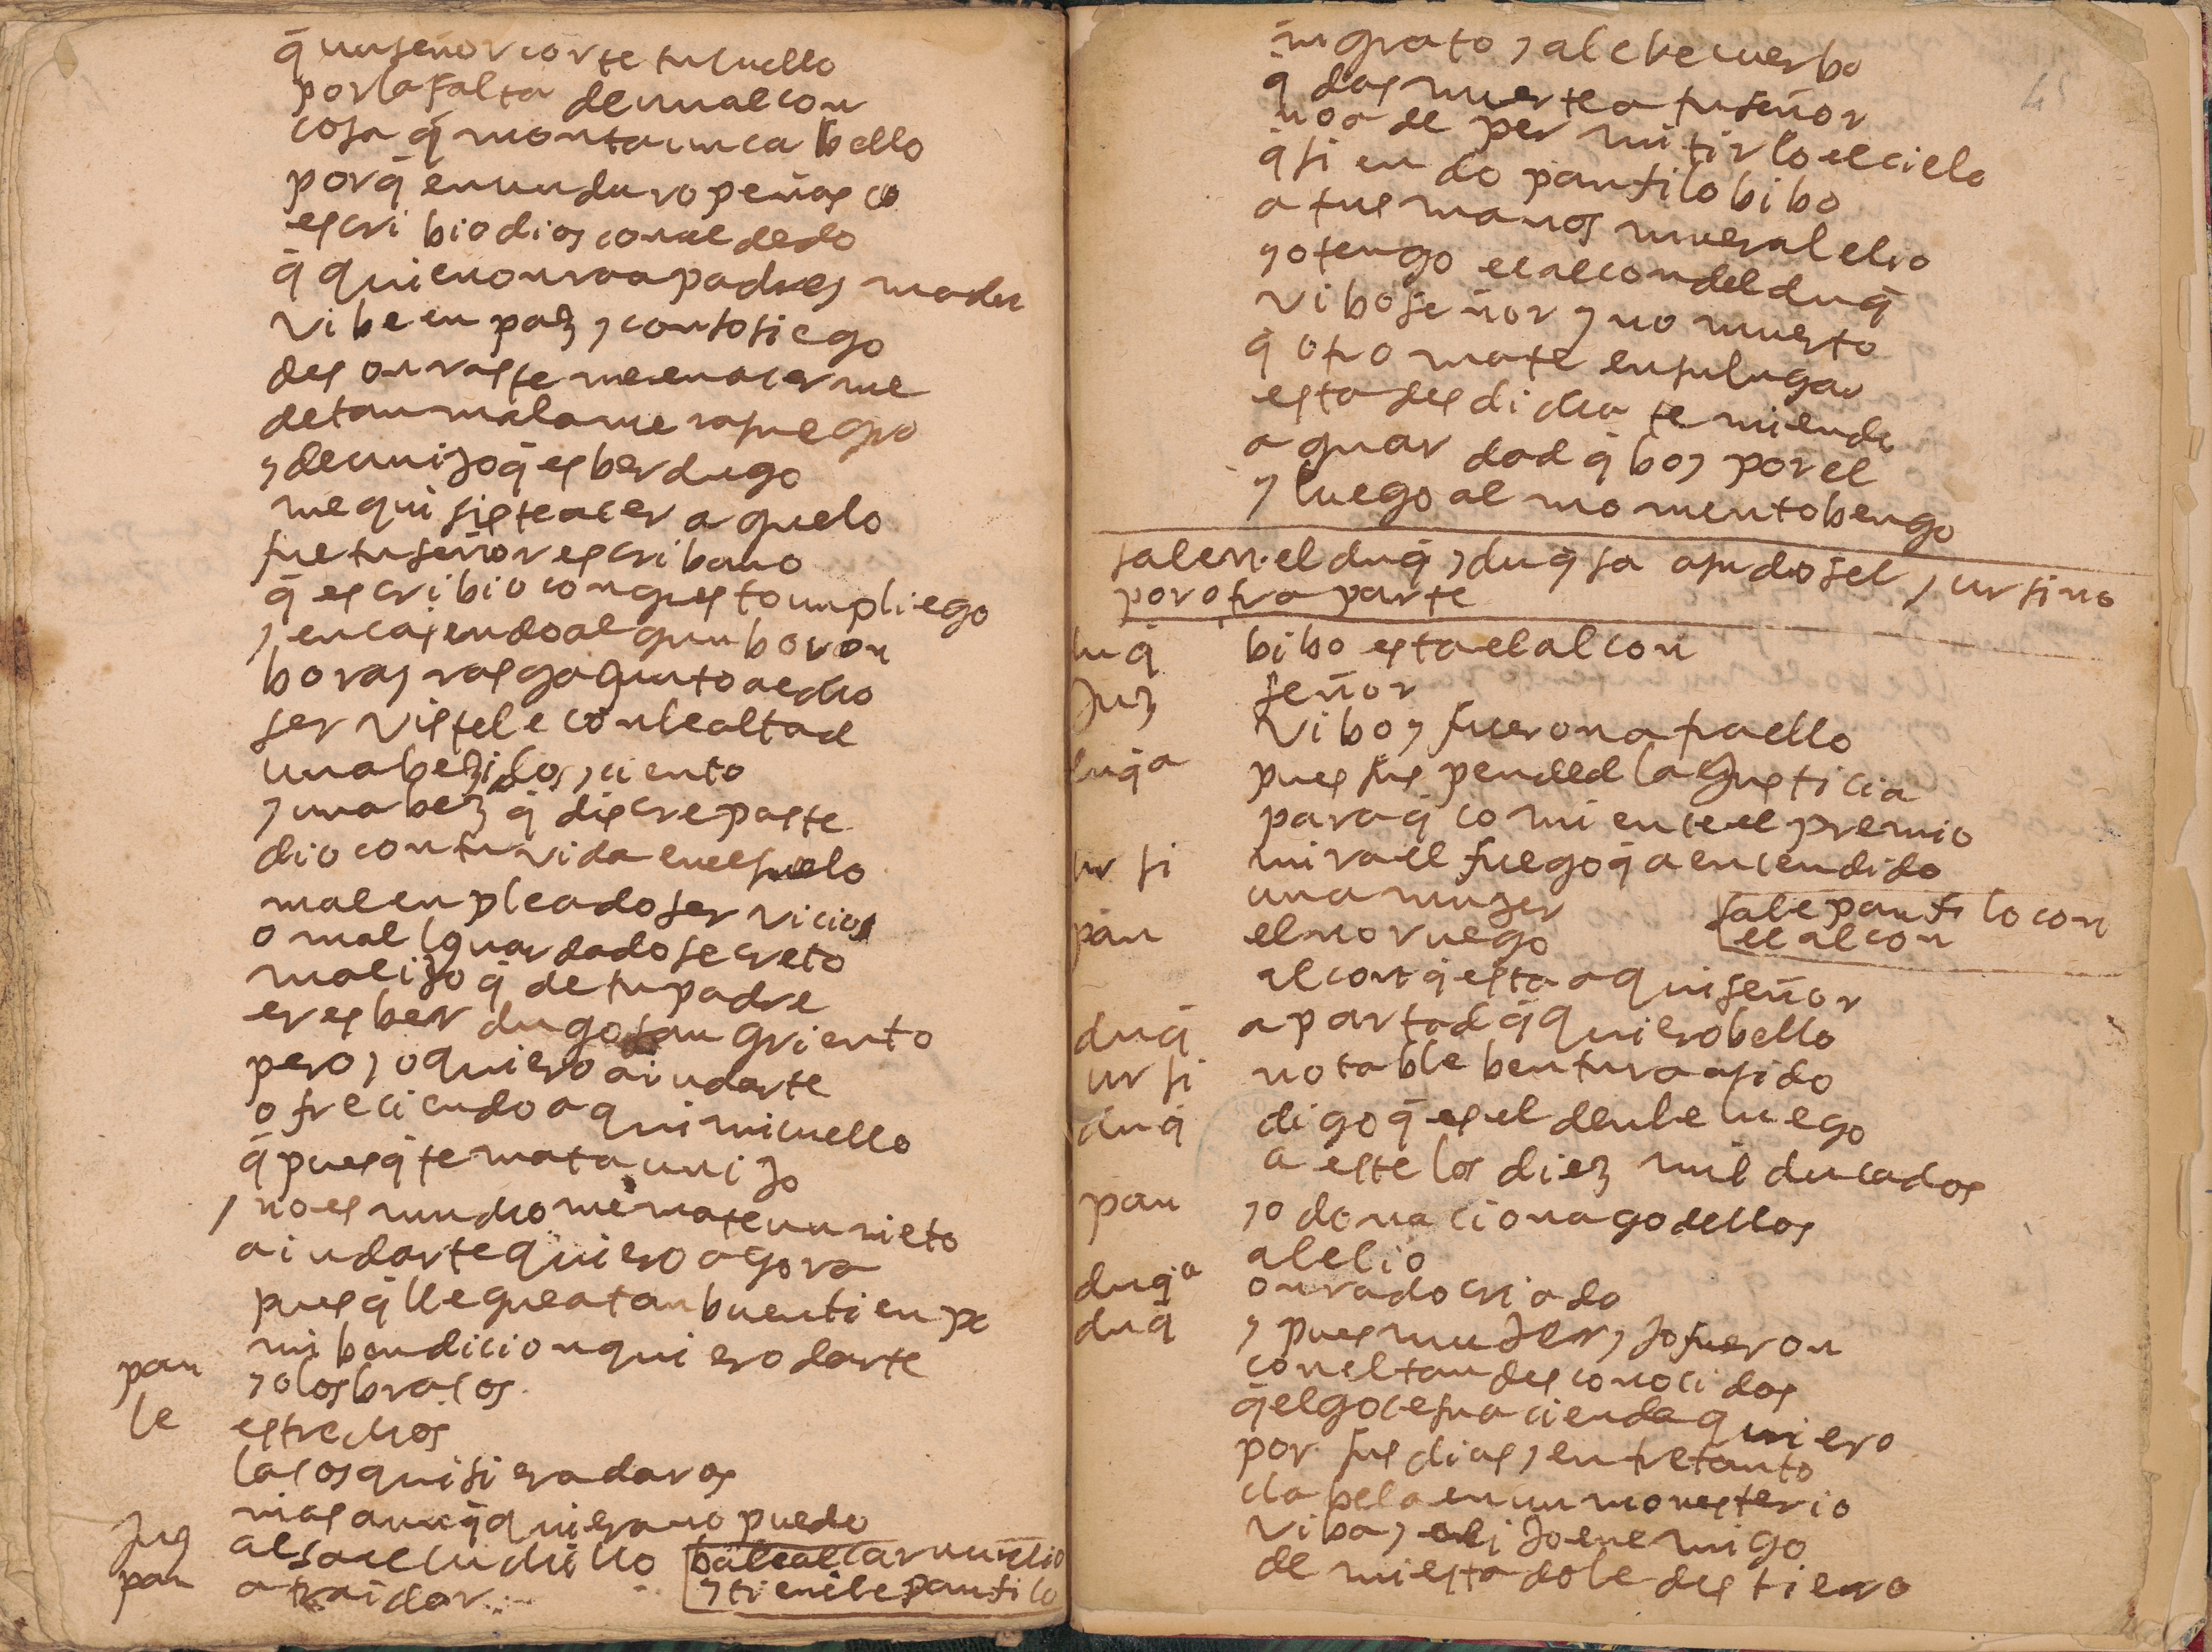 q̄ un señor corte tu cuello
por la falta de un alcon
cosa q̄ monta un cabello
porq̄ en un duro peñasco
escribio dios con el dedo
q̄ quien onrra a padre y madre
vibe en paz y con sosiego
desonraste me en acerme
de tan mala mera suegro
y de un ijo q̄ es berdugo
me quisiste acer aguelo
fue tu señor escribano
q̄ escribio con gusto un pliego
y en cayendo algun boron
bora y rasga quanto a echo
servistele con lealtad
una bez i dos y ciento
y una bez q̄ discrepaste
dio con tu vida en el suelo
mal enpleado servicio
o mal guardado secreto
mal ijo q̄ de tu padre
eres berdugo sangriento
pero yo quiero aiudarte
ofreciendo aqui mi cuello
q̄ pues q̄ te mata un ijo
y no es mucho me mate un nieto
aiudarte quiero agora
pues q̄ llegue a tan buen tienpo
mi bendicion quiero darte
pan yo los brasos
le estrechos
lasos quisiera daros
mas aunq̄ quiera no puedo
Juz alsa el cuchillo
pan a traidor
bale a tiene le panfilo
ingrato y alebe cuerbo
q̄ das muerte a tu señor
no a de permitirlo el cielo
q̄ siendo panfilo bibo
a tus manos muera lelio
yo tengo el alcon del duq̄
vibo señor y no muerto
q̄ otro mate en su lugar
esta desdicha temiendo
aguardad q̄ boy por el
y luego al momento bengo
salen el duq̄ y duq̄sa y ursino
por otra parte
duq̄ bibo esta el alcon
Juz señor
vibo y fueron a traello
duq̄a pues suspended la justicia
paraq̄ comience el premio
ursi mira el fuego q̄ a encendido
una muger
sale panfilo con
el alcon
pan el noruego
alcon q̄ esta aqui señor
duq̄ apartad q̄ quiero bello
ursi notable bentura a sido
duq̄ digo q̄ es el denle luego
a este los diez mil ducados
pan yo donacion ago dellos
a lelio
duq̄a onrado criado
duq̄ y pues muger y ijo fueron
con el tan desconocidos
q̄ el goce su acienda quiero
por sus dias y entretanto
clabela en un monesterio
viba y el ijo enemigo
de mi estado le destierro